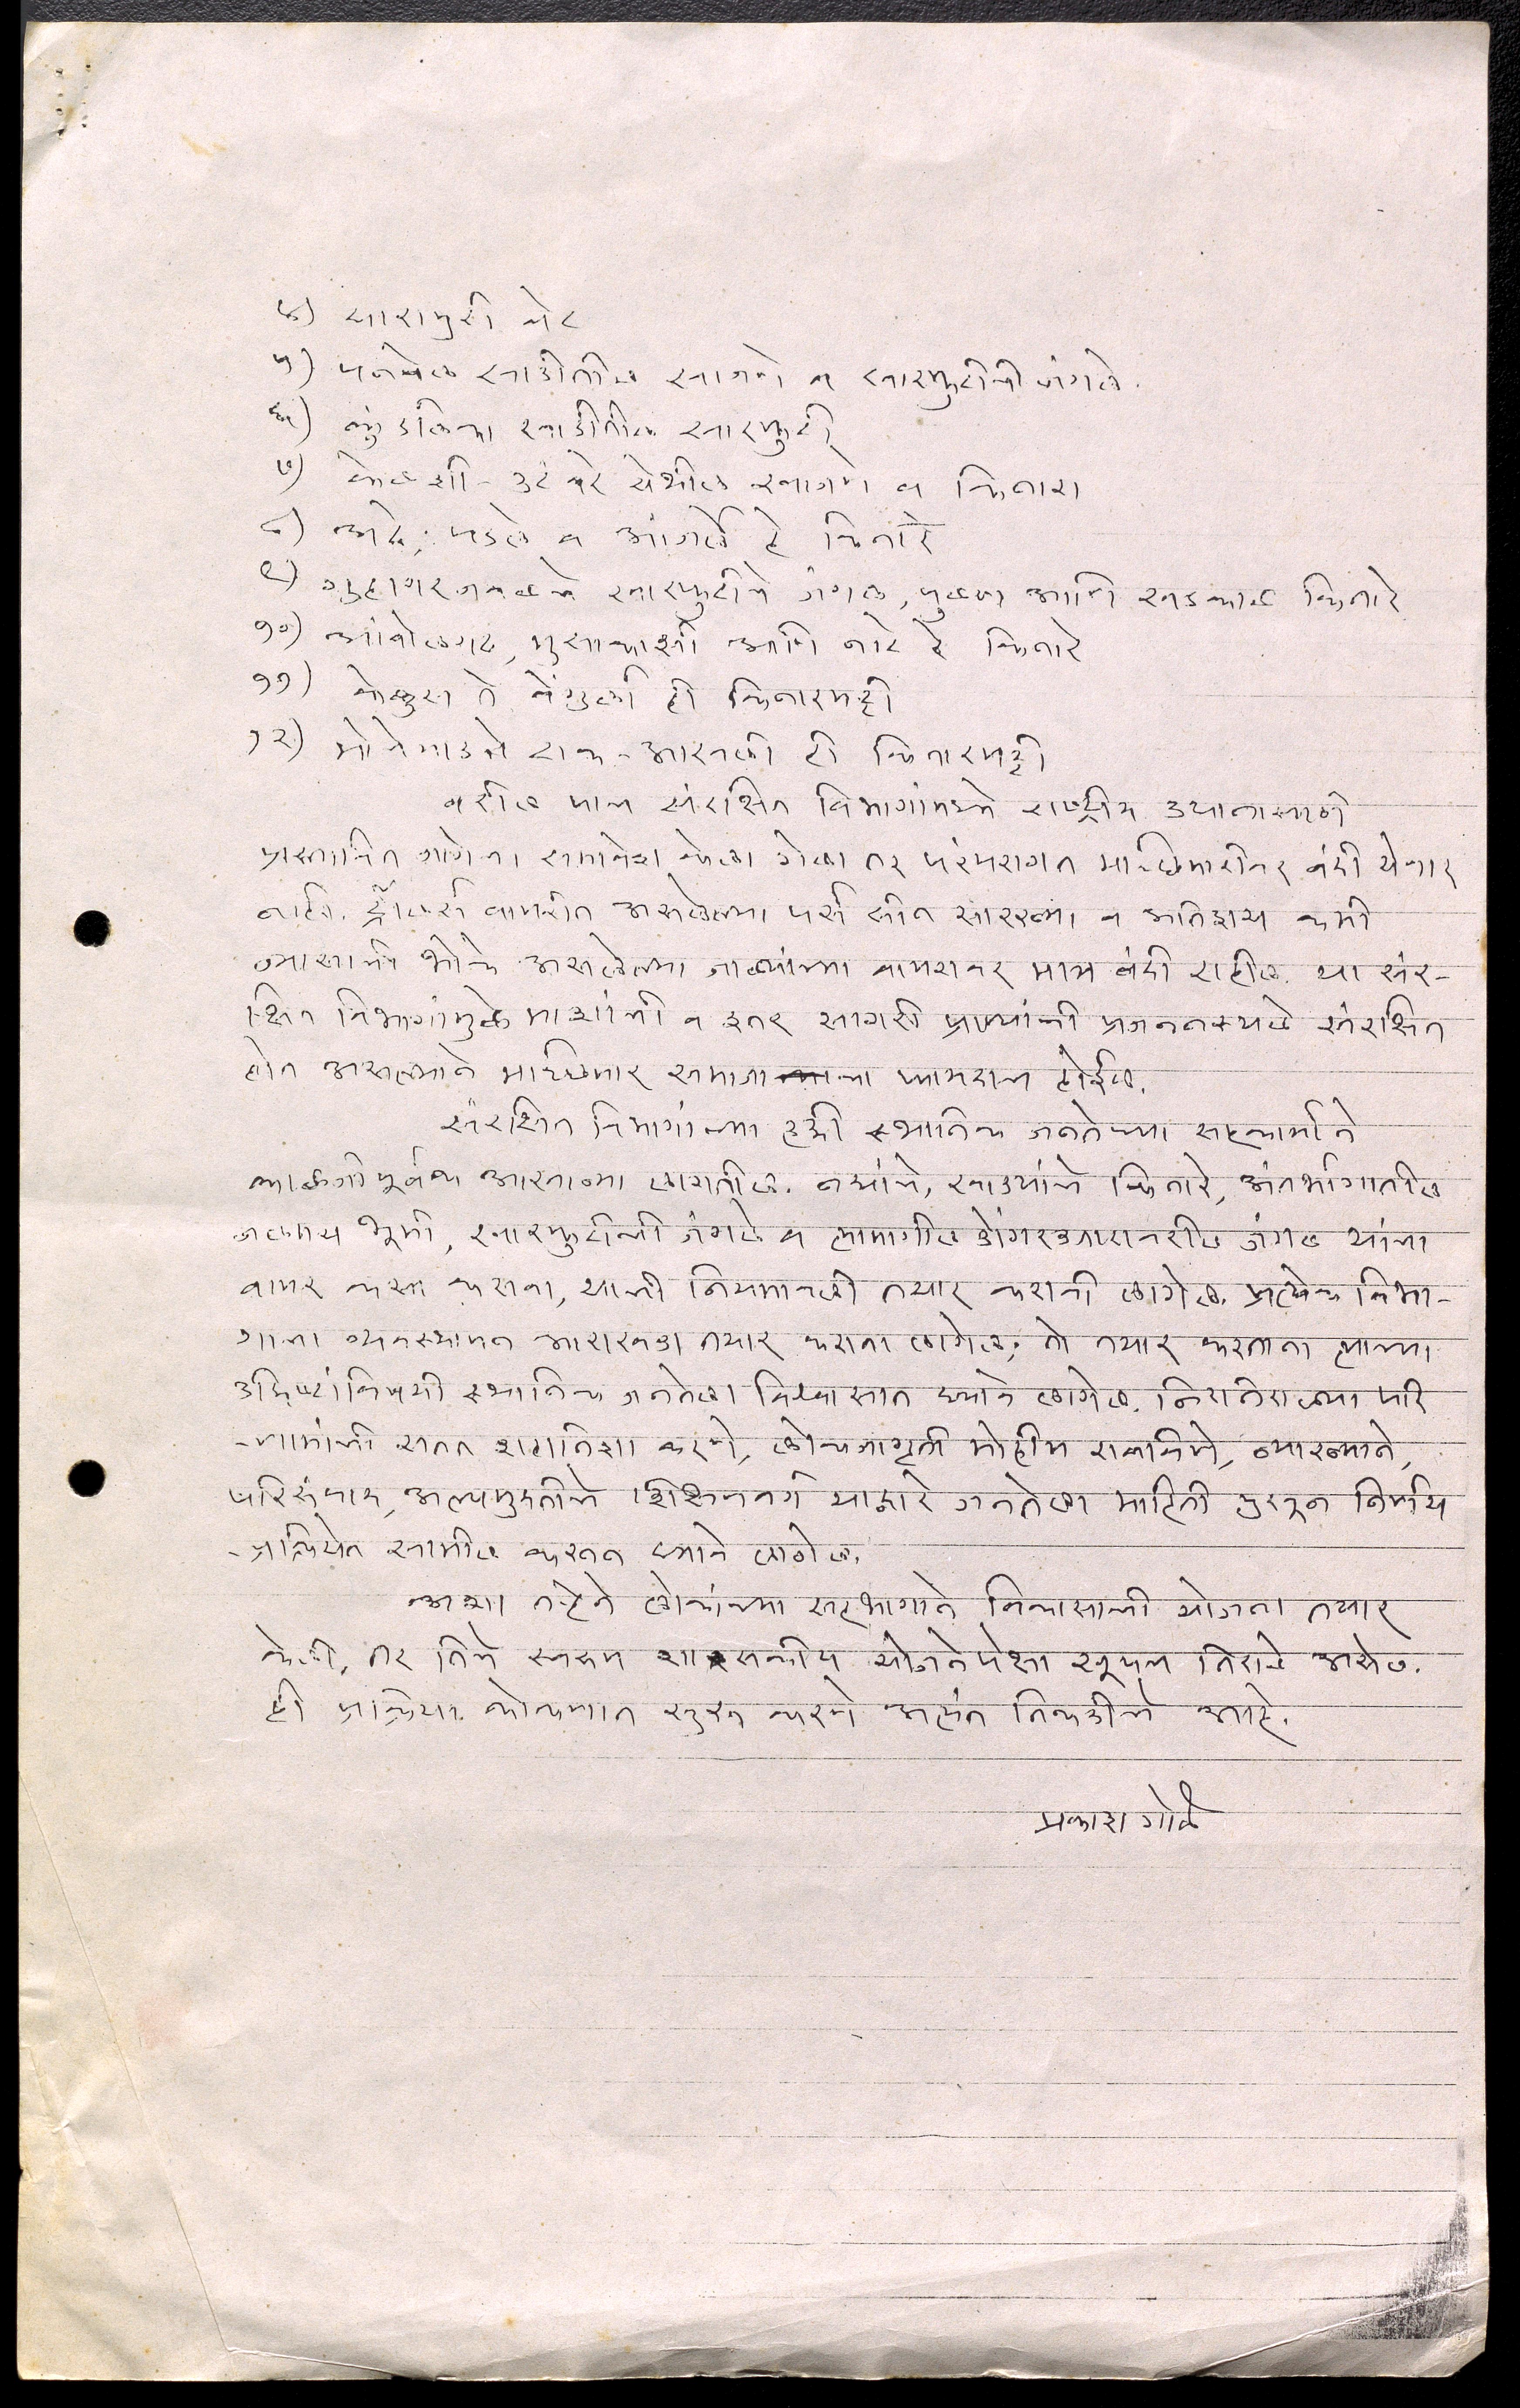 ४) घारापुरी बेट
५) पनवेल खाडीतील खाजणे व खारफुटीची जंगले.
६) कुंडलिका खाडीतील खारफुटी
७) केळशी - उटंबरे येथील खाजणे व किनारा
८) आडे, पडले व आंजर्ले हे किनारे
९) गुहागरजवळचे खारफुटीचे जंगल, पुळण आणि खडकाळ किनारे
१०) आंबोळगड, मुसाकाझी आणि नाटे हे किनारे
११) केळुस ते वेंगुर्ला ही किनारपट्टी
१२) मोचेमाडचे टाक - आरवली ही किनारपट्टी
वरील पाच संरक्षित विभागांमध्ये राष्ट्रीय उद्यानासाठी
प्रस्तावित जागेचा समावेश केला गेला तर परंपरागत माच्छिमारीवर बंदी येणार
नाही. ट्रॉलर्स वापरीत असलेल्या पर्स सीन सारख्या व अतिशय कमी
व्यासाची भोके असलेल्या जाळ्यांच्या वापरावर मात्र बंदी राहील. या संर-
क्षित विभागांमुळे माशांची व इतर सागरी प्राण्यांची प्रजननस्थळे संरक्षित
होत असल्याने माच्छिमार समाजाचा फायदाच होईल.
संरक्षित विभागांच्या हद्दी स्थानिक जनतेच्या सहकार्याने
काळजीपूर्वक आखाव्या लागतील. नद्यांचे, खाड्यांचे किनारे, अंतर्भागातील
जलमय भूमी, खारफुटीची जंगले व त्यामागील डोंगरउतारावरील जंगल यांचा
वापर कसा करावा, याची नियमावली तयार करावी लागेल. प्रत्येक विभा-
गाचा व्यवस्थापन आराखडा तयार करावा लागेल; तो तयार करताना त्याच्या
उद्दिष्टांविषयी स्थानिक जनतेला विश्वासात घ्यावे लागेल. निरनिराळ्या परि
-णामांची सतत शहानिशा करणे, लोकजागृती मोहीम राबविणे, व्याख्याने,
परिसंवाद, अल्पमुदतीचे शिक्षणवर्ग याद्वारे जनतेला माहिती पुरवून निर्णय
-प्रक्रियेत सामील करून घ्यावे लागेल.
अशा तऱ्हेने लोकांच्या सहभागाने विकासाची योजना तयार
केली, तर तिचे स्वरूप शासकीय योजनेपेक्षा खूपच निराळे असेल.
ही प्रक्रिया कोकणात सुरू करणे अत्यंत निकडीचे आहे.
प्रकाश गोळे